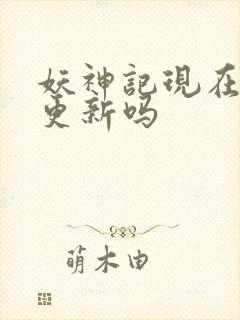 妖神記現在
更新吗
萌木由